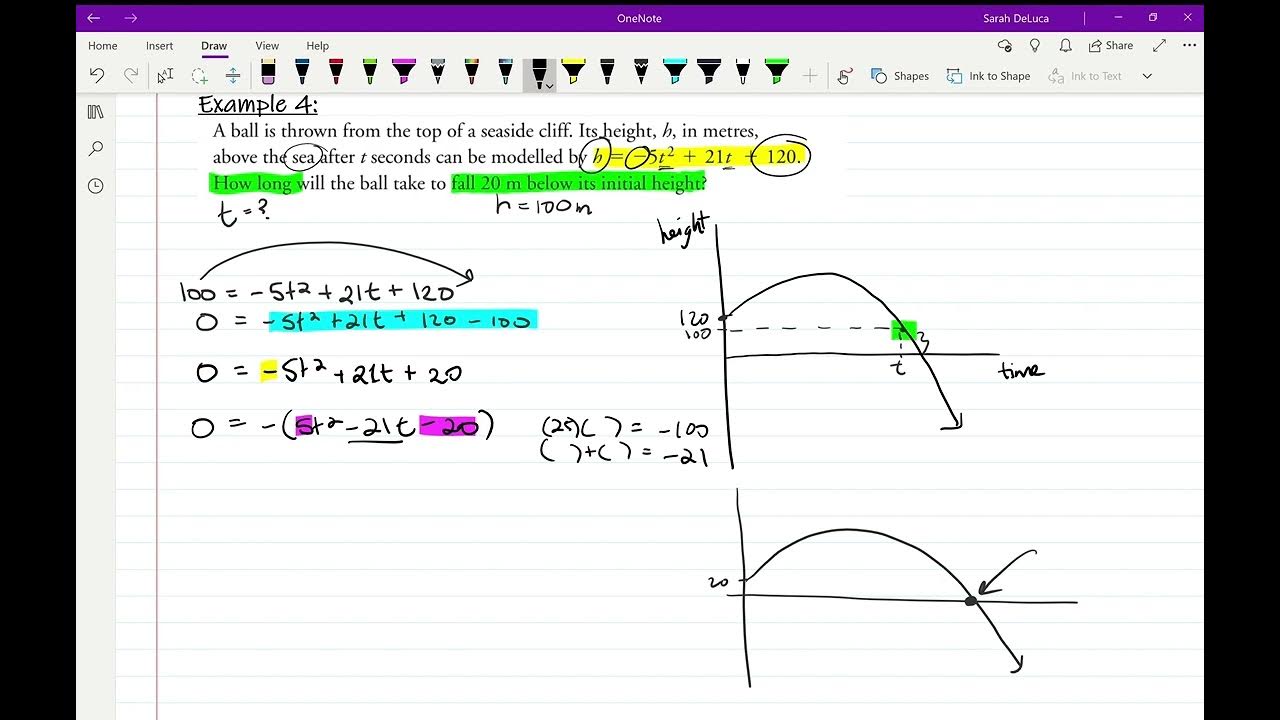 OneNote
Sarah DeLuca
Home Insert Draw View Help
Share
Shapes Ink to Shape Ink to Text
Example 4:
A ball is thrown from the top of a seaside cliff. Its height, h, in metres,
above the sea after t seconds can be modelled by h = −5t² + 21t + 120.
How long will the ball take to fall 20 m below its initial height?
t = ?
h = 100m
height
100 = -5t² + 21t + 120
0 = -5t² + 21t + 120 - 100
120
100
0 = -5t² + 21t + 20
t
time
0 = -(5t² - 21t - 20)
(25)( ) = -100
( )+( ) = -21
20